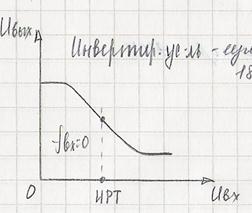 Uвых
Инвертир. ус-ль - если
18
fвх=0
0
ИРТ
Uвх